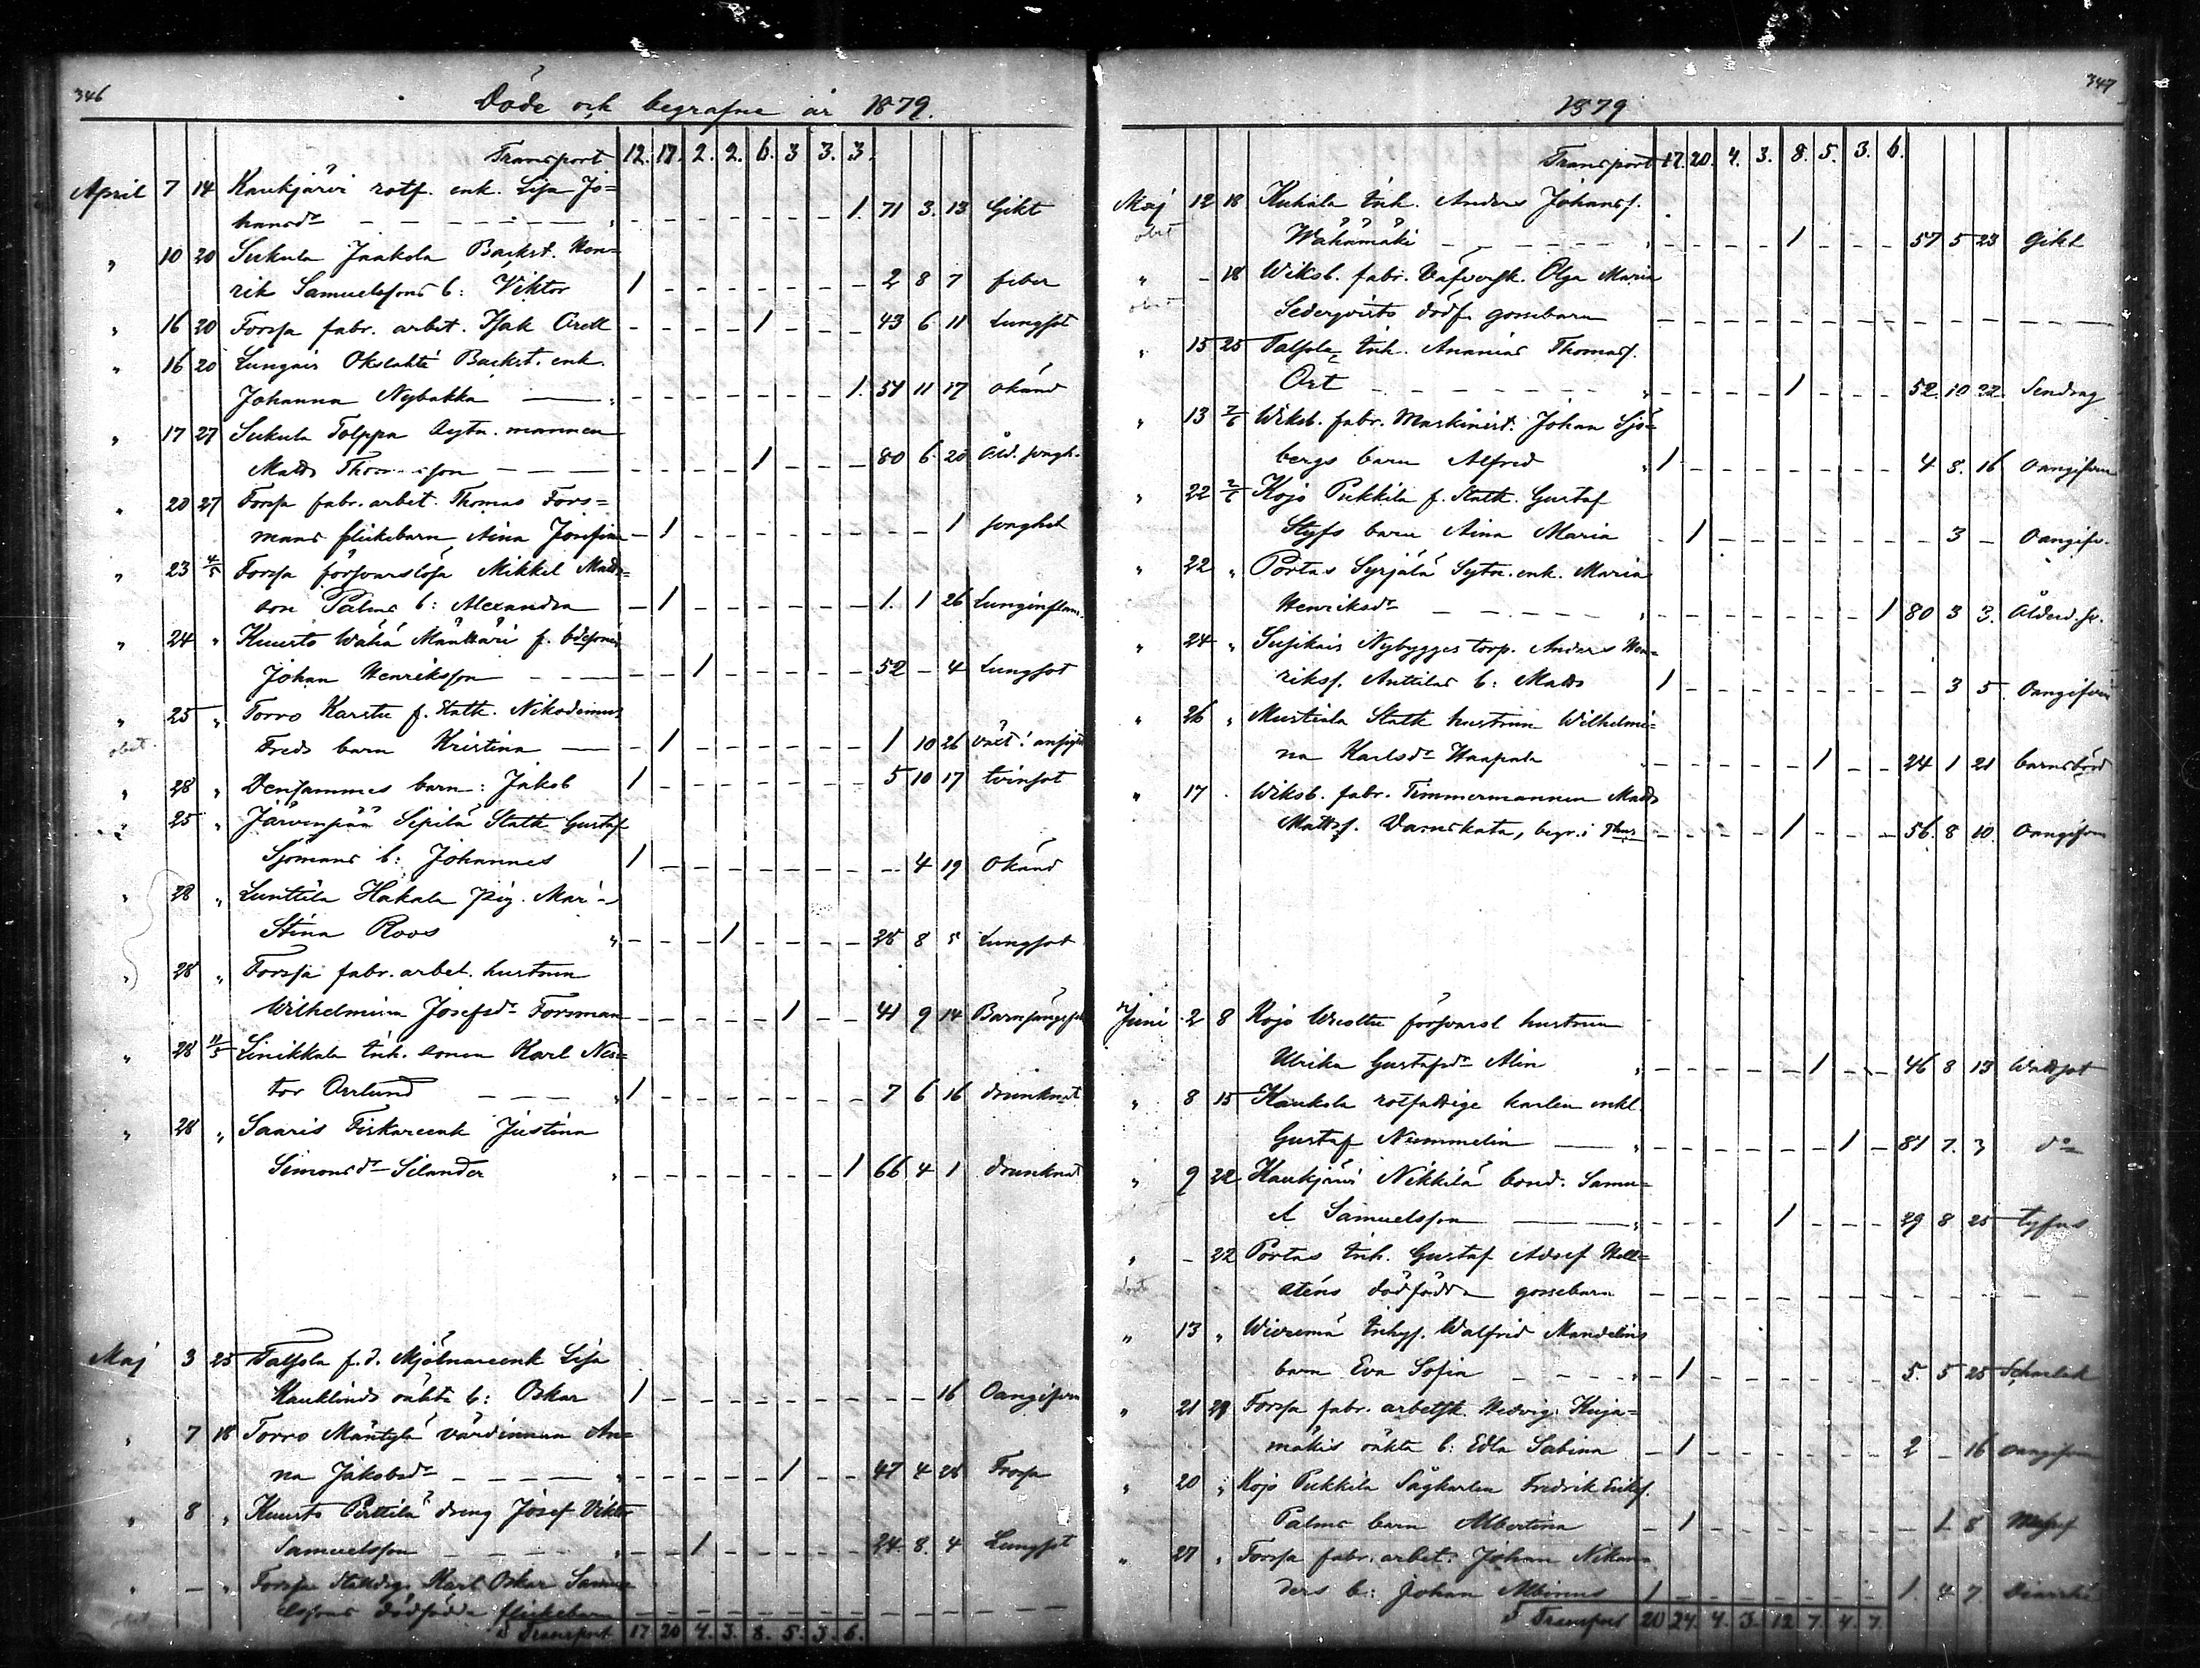 346
Döde och begrafne år 1879.
Transport 12. 17. 2. 2. 6. 3 3. 3.
April 7 14 Kaukjärvi rotf. enk. Lisa Jo=
hansdr – – – – – 1. 71 3. 13 Gikt
" 10 20 Sukula Jaakola Backst. Hen=
rik Samuelssons b: Viktor 1 – – – – – – – 2 8 7 feber
" 16 20 Forssa fabr. arbet. Isak Orell – – – – 1 – – – 43 6 11 Lungsot
" 16 20 Lungois Okslahti Backst. enk.
Johanna Nybakka – – – – – – – 1. 51 11 17 Okänd
" 17 27 Sukula Tolppa Sytn. mannen
Matts Thomasson – – – – 1 – – – 80 6 20 Åld. svagh.
" 20 27 Forssa fabr. arbet. Thomas Fors=
mans flickebarn, Aina Josefina – 1 – – – – – – – – 1 svaghet
" 23 4/5 Forssa försvarslösa Mikkel Matts=
son Palms b: Alexandra – 1 – – – – – – 1. 1 26 Lunginflam.
" 24 " Kuusto Wähä Mänttäri f. bdesonen
Johan Henriksson – – 1 – – – – – 52 – 4 Lungsot
" 25 " Torro Karstu f. Stath. Nikodemus
obet. Freds barn Kristina – 1 – – – – – – 1 10 26 växt i ansigtet
" 28 " Densammes barn: Jakob 1 – – – – – – – 5 10 17 tvinsot
" 25 " Järvenpää Sipilä Stath. Gustaf
Sjömans b: Johannes 1 – – – – – – – – 4 19 Okänd
" 28 " Lunttila Hakala pig. Maria
Stina Roos " – – – 1 – – – – 28 8 5 Lungsot
" 28 " Forssa fabr. arbet. hustrun
Wilhelmina Josefsdr Forsman – – – – – 1 – – 41 9 14 Barnsängsfeb
" 28 11/5 Linikkala inh. sonen Karl Nes=
tor Orrlund – – – " 1 – – – – – – – 7 6 16 drunknat
" 28 " Saaris Fiskareenk Justina
Simonsdr Selander " – – – – – – – 1 66 4 1 drunknat
Maj 3 25 Talsola f.d. Mjölnareenk Lisa
Kauklinds oäkta b: Oskar 1 – – – – – – – – – 16 Oangifven
" 7 18 Torro Mäntylä värdinnan An=
na Jakobsdr – – – – " – – – – – 1 – – 47 4 28 Frossa
" 8 " Kuusto Perttilä dreng Josef Viktor
Samuelsson – – – – " – – 1 – – – – – 24. 8. 4 Lungsot
" – " Forssa Stalldrg. Karl Oskar Samu=
obet elssons dödfödda flickebarn – – – – – – – – – – –
Transport 17 20 4. 3. 8. 5. 3. 6.
347
1879
Transport 17. 20. 4. 3. 8. 5. 3. 6.
Maj 12 18 Kuhala inh. Anders Johanss.
obet Wähämäki – – – – – " – – – – 1 – – – 57 5 23 Gikt
" – 18 Wiksb. fabr. Väfversk. Olga Maria
obet Sederqvists dödf. gossebarn – – – – – – – – – – –
" 15 25 Talsola inh. Ananias Thomass.
Ort – – – – – " – – – – 1 – – – 52. 10 22. Sendrag
" 13 2/6 Wiksb. fabr. Maskinist. Johan Sjö=
bergs barn Alfred " 1 – – – – – – – 4 8. 16 Oangifven
" 22 2/6 Kojo Pukkila f. Stath. Gustaf
Styfs barn Aina Maria – 1 – – – – – – – 3 – Oangifv.
" 22 " Portas Syrjälä Sytn. enk. Maria
Henriksdr – – – – – " – – – – – – – 1 80 3 3. Ålderd. sv.
" 24 " Susikais Nybygges torp. Anders Hen=
rikss. Anttilas b: Matts 1 – – – – – – – – 3 5 Oangifven
" 26 " Mustiala Stath hustrun Wilhelmi=
na Karlsdr Haapala – – – – – 1 – – 24 1 21 barnsbörd
" 17 . Wiksb. fabr. Timmermannen Matts
Mattss. Varnskata, begr. i – – – – 1 – – – 56. 8 10. Oangifven
Juni 2 8 Kojo försvarsl hustrun
Ulrika Gustafsdr Alin " – – – – – 1 – – 46 8 13 Wattsot
" 8 15 Kaukola rotfattige karlen enkl.
Gustaf Nummelin – " – – – – – – 1 – 81 7. 3 do
" 9 22 Kaukjärvi Nikkilä bond. Samu=
el Samuelsson – " – – – – 1 – – – 29 8 25 tyfus
" – 22 Portas inh. Gustaf Adolf Hell=
sténs dödfödda gossebarn – – – – – – – – – – –
" 13 " Wieremä inhys. Walfrid Mandelins
barn Eva Sofia – – – – " – 1 – – – – – – 5. 5 25 Scharlak
" 21 29 Forssa fabr. arbetsk. Hedvig Kuja=
mäkis oäkta b: Edla Sabina – 1 – – – – – – 2 – 16 Oangifven
" 20 " Kojo Pukkila Sågkarlen Fredrik Erikss.
Palms barn Albertina – 1 – – – – – – – 1 8
" 27 " Forssa fabr. arbet. Johan Nikan=
ders b: Johan Albinus 1 – – – – – – – 1. 4 7
Transport 20 24. 4. 3. 12. 7. 4. 7.